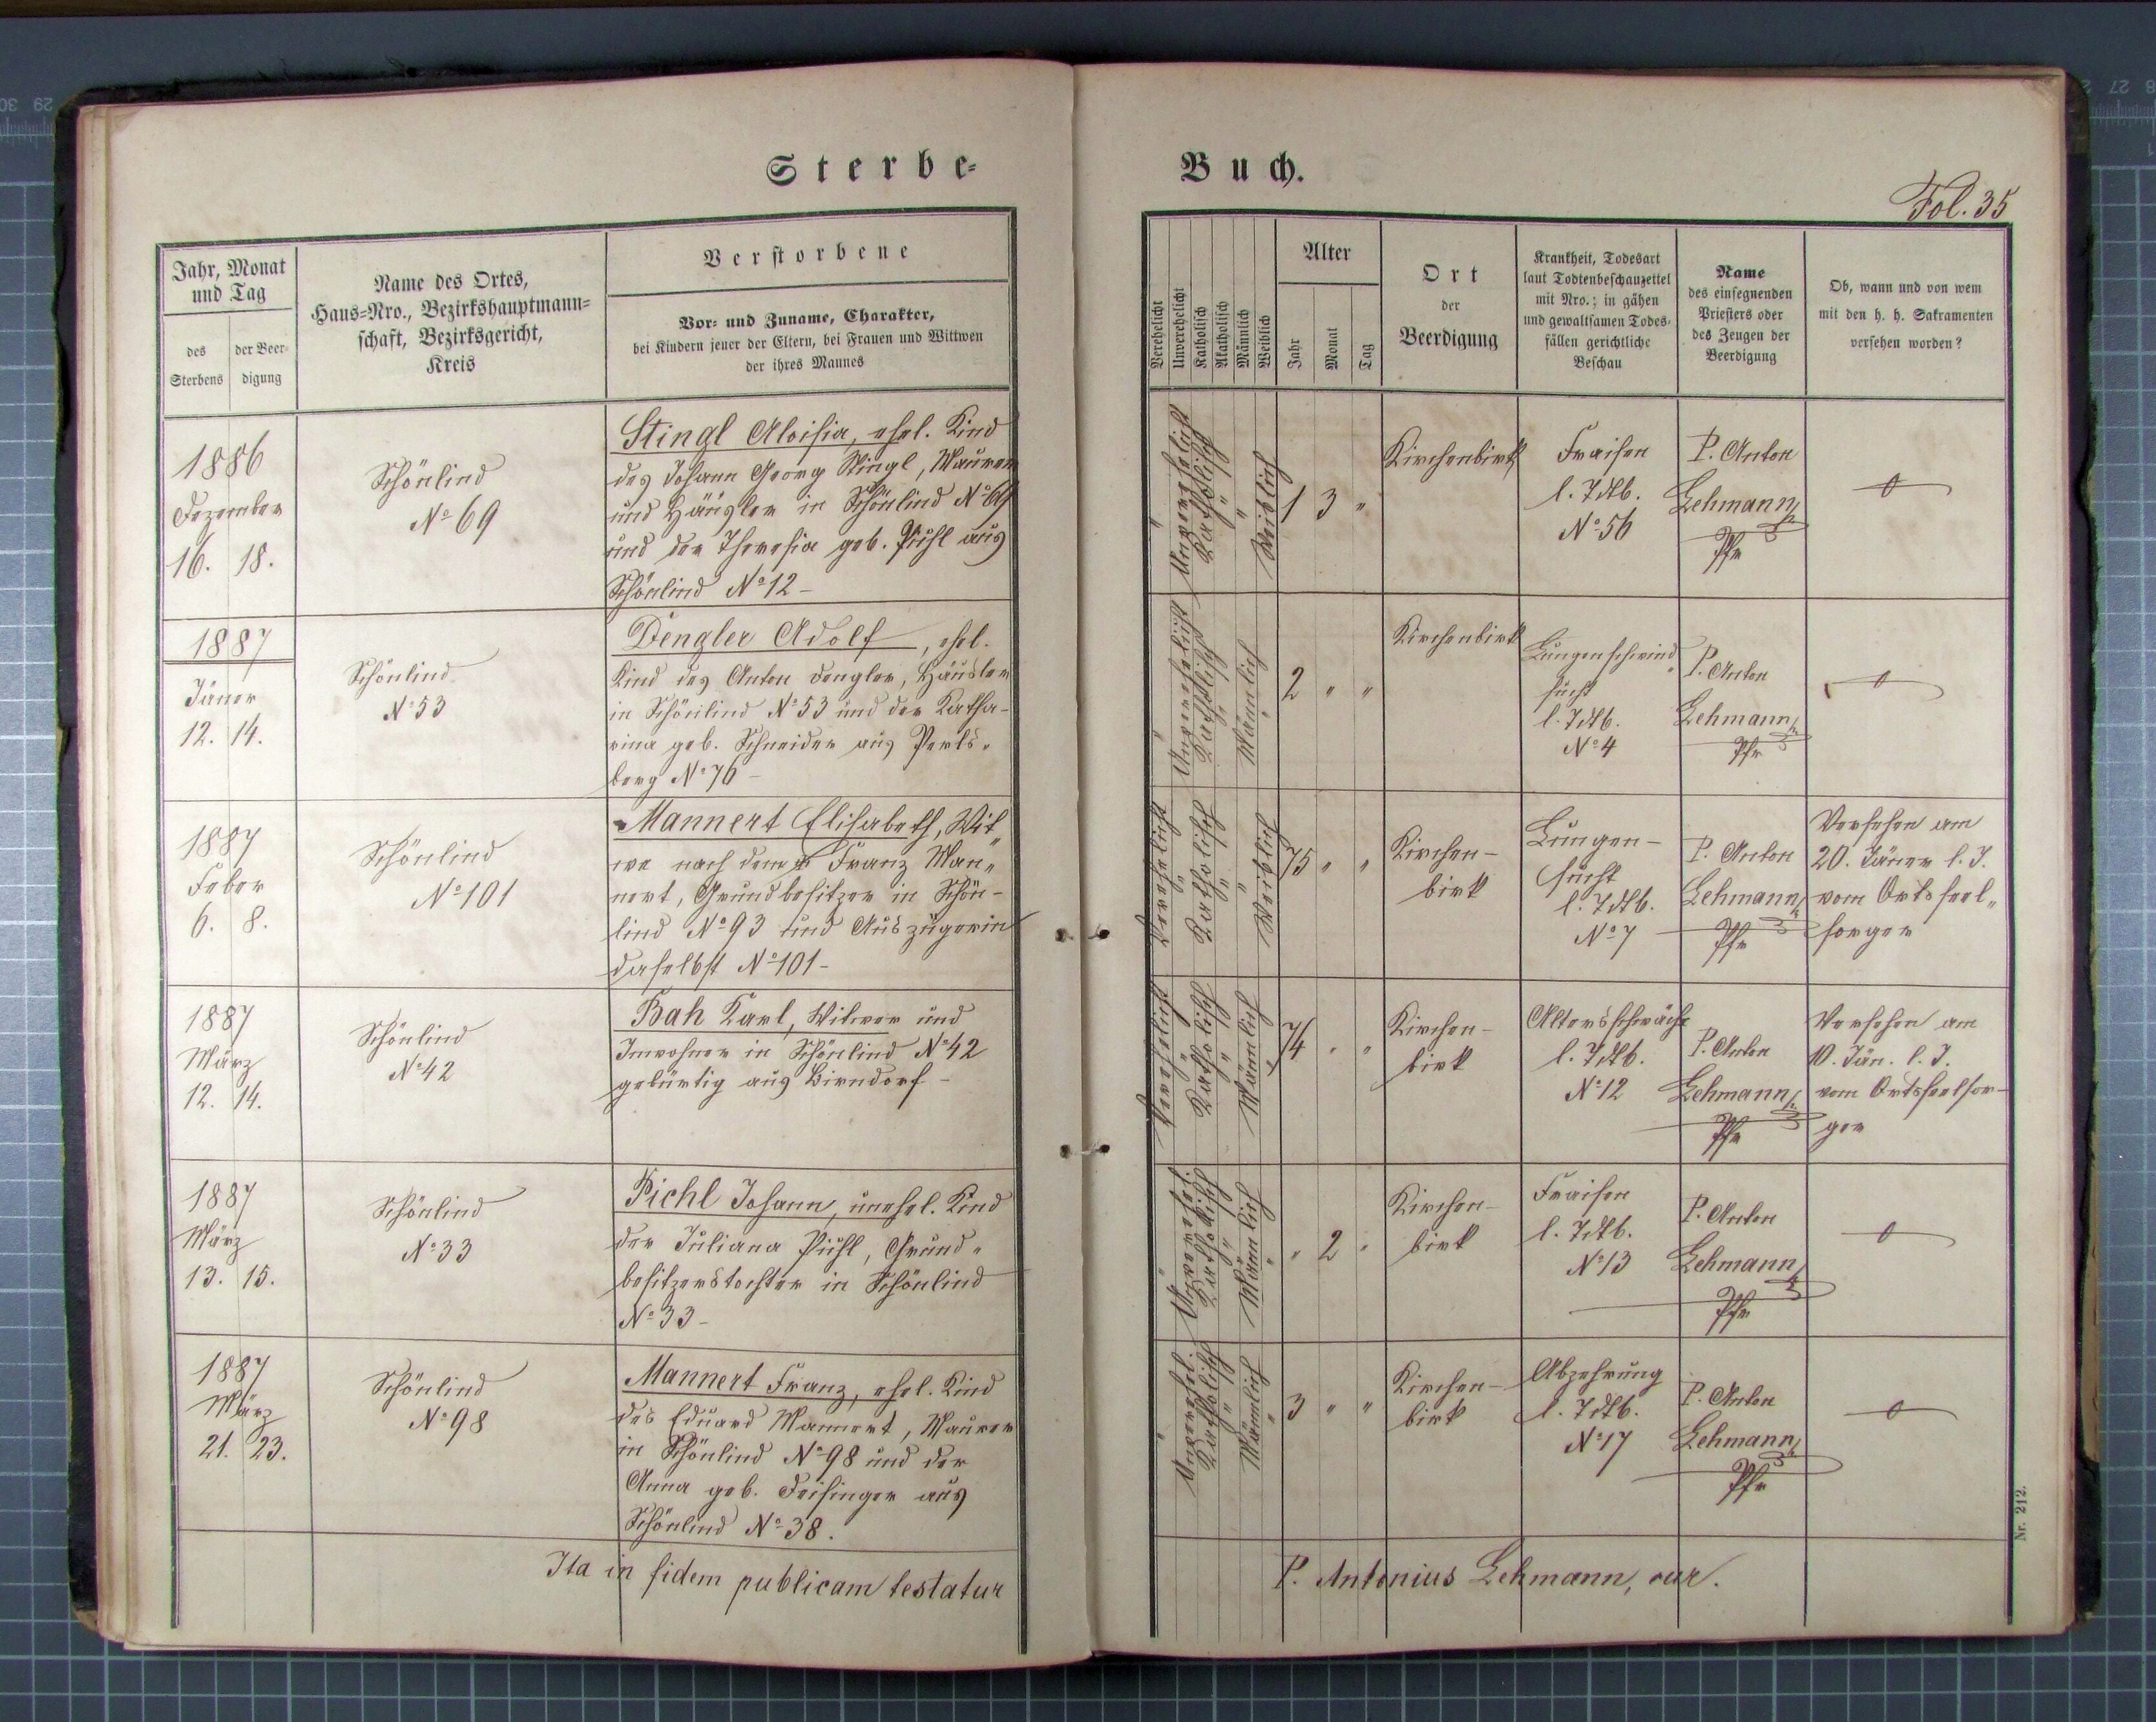 Sterbe-
Buch.
Fol. 35
Jahr, Monat
und Tag
des
Sterbens
der Beer-
digung
Name des Ortes,
Haus-Nro., Bezirkshauptmann-
schaft, Bezirksgericht,
Kreis
Verstorbene
Vor- und Zuname, Charakter,
bei Kindern jener der Eltern, bei Frauen und Wittwen
der ihres Mannes
Verehelicht
Unverehelicht
Katholisch
Akatholisch
Männlich
Weiblich
Alter
Jahr
Monat
Tag
Ort
der
Beerdigung
Krankheit, Todesart
laut Todtenbeschauzettel
mit Nro.; in gähen
und gewaltsamen Todes-
fällen gerichtliche
Beschau
Name
des einsegnenden
Priesters oder
des Zeugen der
Beerdigung
Ob, wann und von wem
mit den h. h. Sakramenten
versehen worden?
1886
Dezember
16. 18.
Schönlind
No 69
Stingl Aloisia, ehel. Kind
des Johann Georg Stingl, Maurer
und Häusler in Schönlind No 69
und der Theresia geb. Pichl aus
Schönlind No 12 -
" Unverehelicht Katholisch " " Weiblich
1 3 "
Kirchenbirk
Fraisen
l. Tdtb.
No 56
P. Anton
Lehmann
Pfr
1887
Jäner
12. 14.
Schönlind
No 53
Dengler Adolf, ehel.
Kind des Anton Dengler, Häusler
in Schönlind No 53 und der Katha-
rina geb. Schneider aus Perls-
berg No 76 -
" Unverehelicht Katholisch " Männlich "
2 " "
Kirchenbirk
Lungenschwind
sucht
l. Tdtb.
No 4
P. Anton
Lehmann
Pfr
1887
Feber
6. 8.
Schönlind
No 101
Mannert Elisabeth, Wit-
we nach dem Franz Man-
nert, Grundbesitzer in Schön-
lind No 93 und Auszügerin
daselbst No 101 -
Verehelicht " Katholisch " " Weiblich
75 " "
Kirchen-
birk
Lungen-
sucht
l. Tdtb.
No 7
P. Anton
Lehmann
Pfr
Versehen am
20. Jäner l. J.
vom Ortsseel-
sorger
1887
März
12. 14.
Schönlind
No 42
Bah Karl, Witwer und
Inwohner in Schönlind No 42
gebürtig aus Birndorf -
Verehelicht " Katholisch " Männlich "
74 " "
Kirchen-
birk
Altersschwäche
l. Tdtb.
No 12
P. Anton
Lehmann
Pfr
Versehen am
10. Jän. l. J.
vom Ortsseelsor-
ger
1887
März
13. 15.
Schönlind
No 33
Pichl Johann, unehel. Kind
der Juliana Pichl, Grund-
besitzerstochter in Schönlind
No 33 -
" Unverehel. Katholisch " Männlich "
" 2 "
Kirchen-
birk
Fraisen
l. Tdtb.
No 13
P. Anton
Lehmann
Pfr
1887
März
21. 23.
Schönlind
No 98
Mannert Franz, ehel. Kind
des Eduard Mannert, Maurer
in Schönlind No 98 und der
Anna geb. Feisinger aus
Schönlind No 38.
" Unverehel. Katholisch " Männlich "
3 " "
Kirchen-
birk
Abzehrung
l. Tdtb.
No 17
P. Anton
Lehmann
Pfr
Ita in fidem publicam testatur
P. Antonius Lehmann, cur.
Nr. 212.